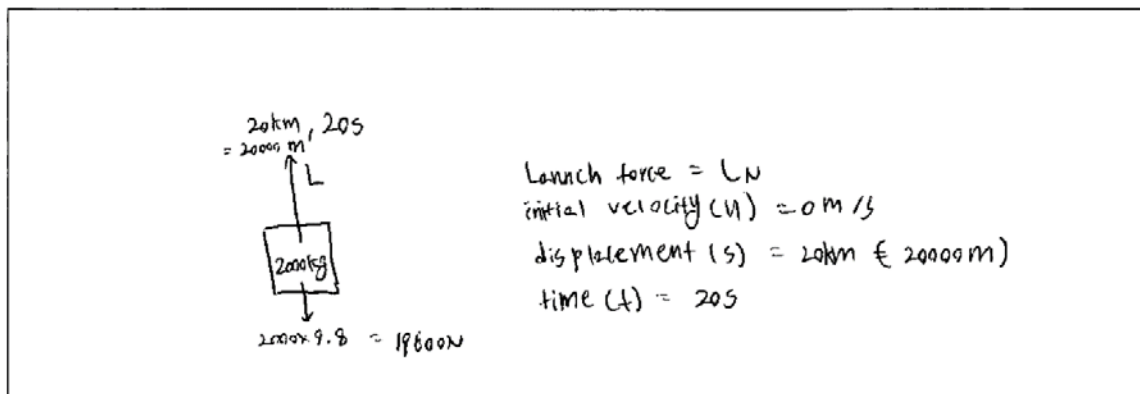 20km, 20s
= 20000 m
L
2000kg
2000×9.8 = 19600N
Launch force = LN
initial velocity (u) = 0 m/s
displacement (s) = 20km (= 20000m)
time (t) = 20s